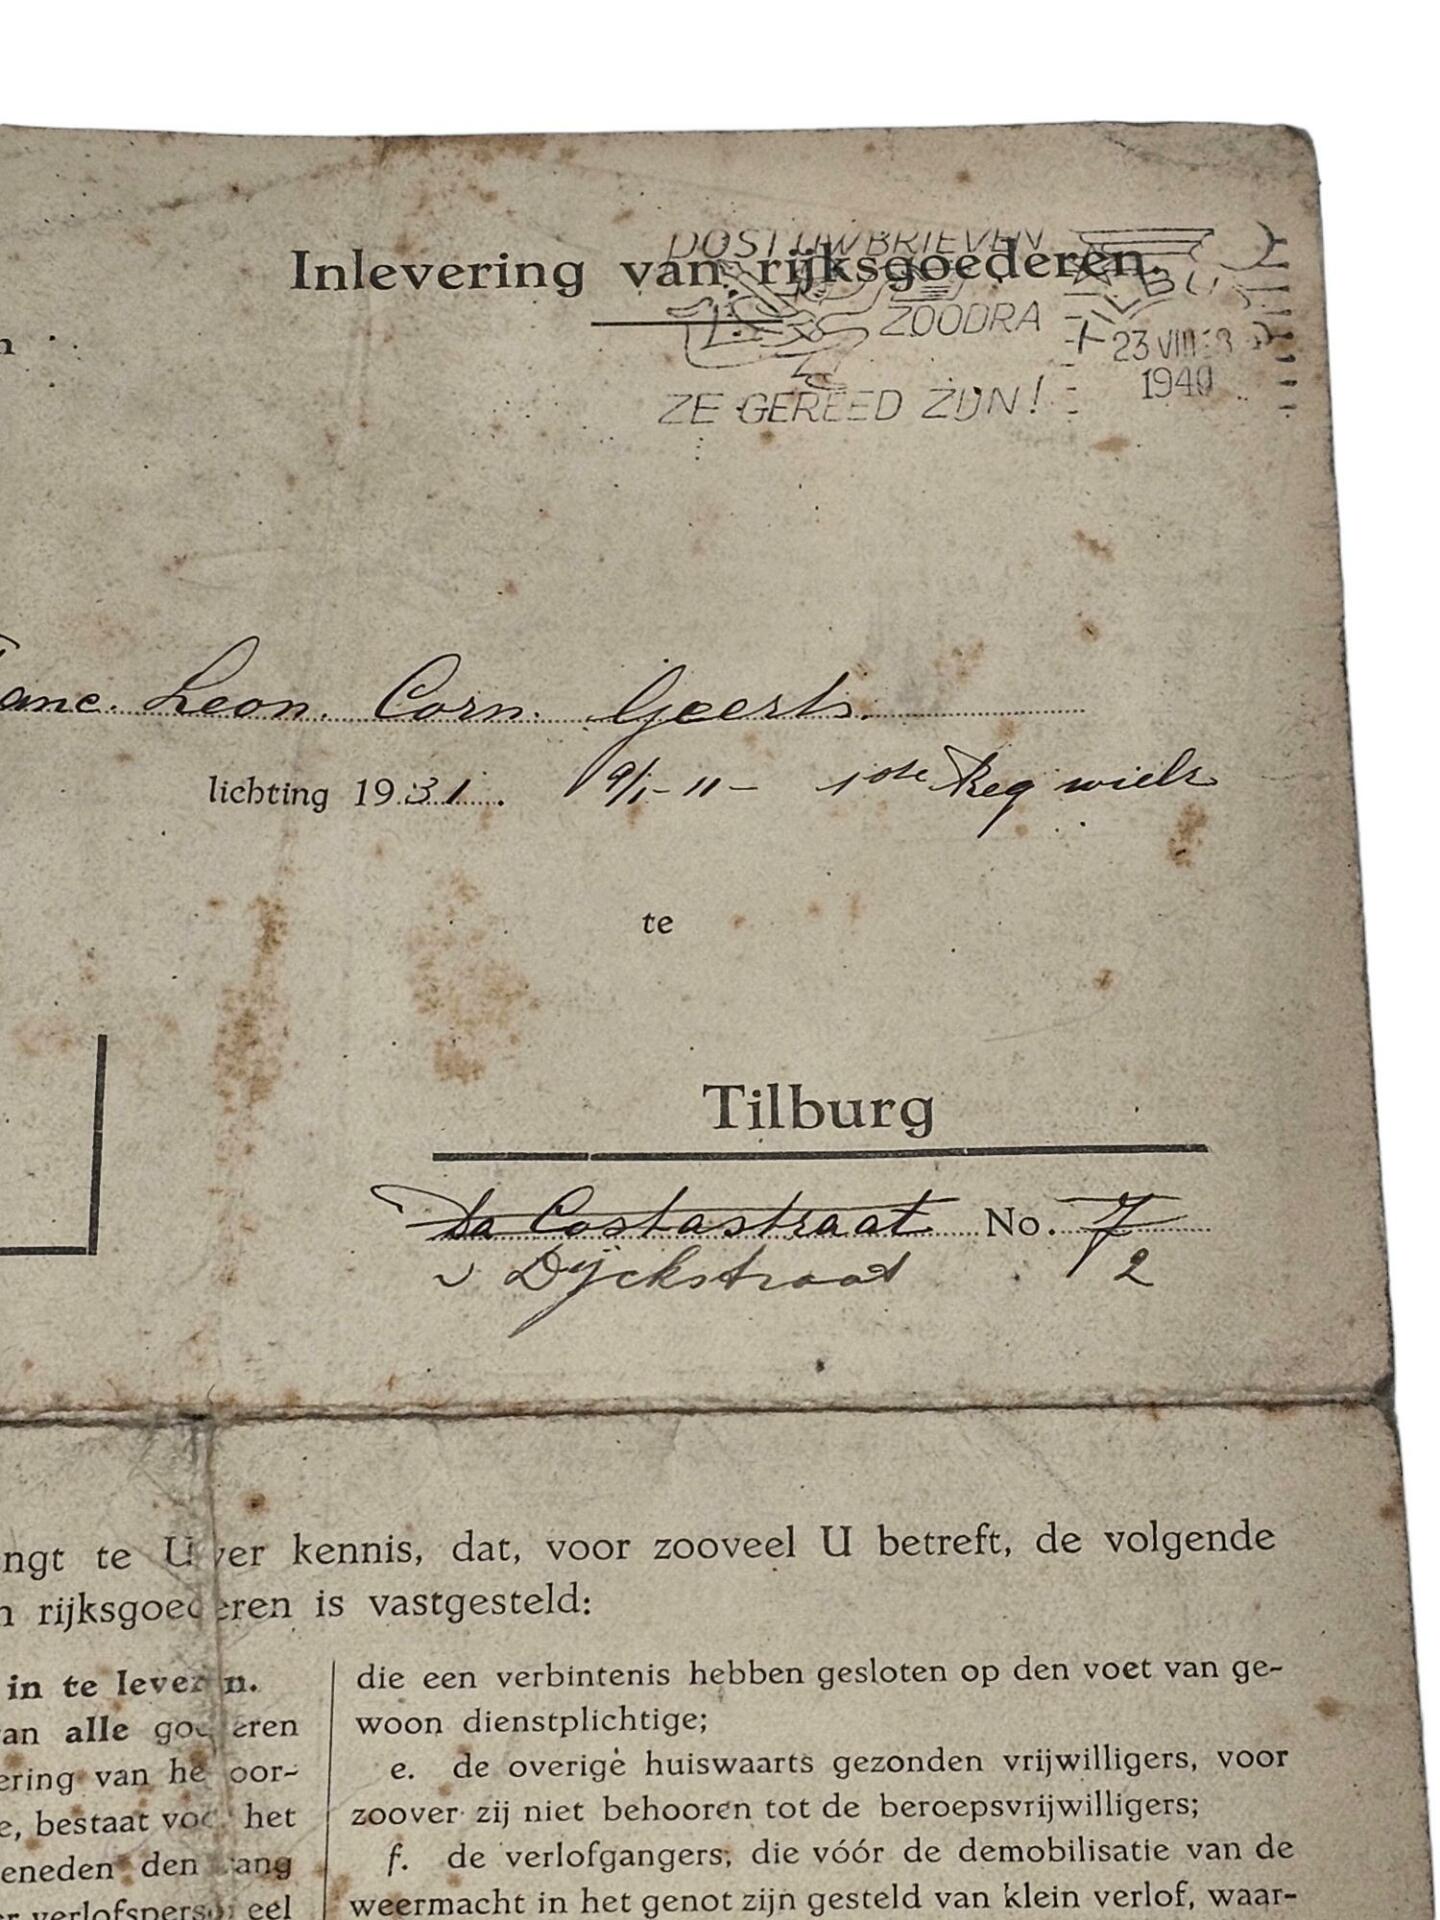 Inlevering van rijksgoederen.
POST UW BRIEVEN
ZOODRA
ZE GEREED ZIJN!
TILBURG
23 VIII
1940
n
Leon. Corn. Geerts.
lichting 1931. 1ste Reg wielr
te
Tilburg
Da Costastraat No. 7
v Dijckstraat 2
ngt te Uwer kennis, dat, voor zooveel U betreft, de volgende
n rijksgoederen is vastgesteld:
in te leveren.
van alle goederen
ering van het oor-
e, bestaat voor het
eneden den rang
er verlofspersoneel
die een verbintenis hebben gesloten op den voet van ge-
woon dienstplichtige;
e. de overige huiswaarts gezonden vrijwilligers, voor
zoover zij niet behooren tot de beroepsvrijwilligers;
f. de verlofgangers, die vóór de demobilisatie van de
weermacht in het genot zijn gesteld van klein verlof, waar-